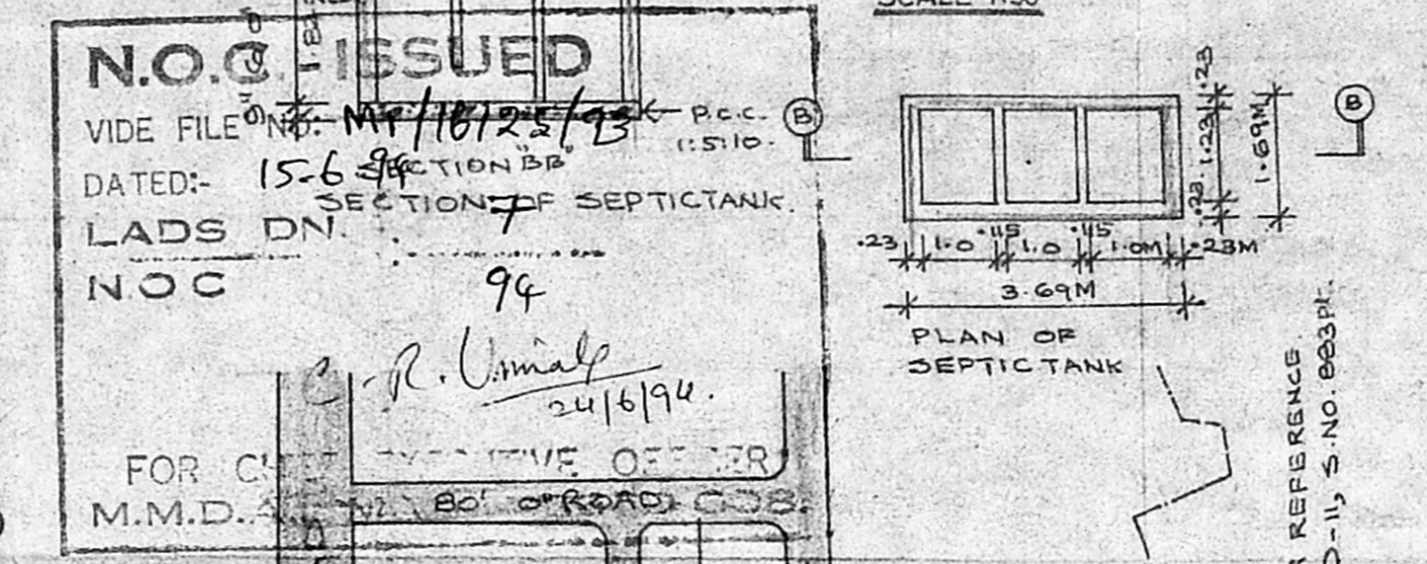 N.O.C. ISSUED
VIDE FILE NO: MP/18125/93
DATED:- 15-6-94
LADS DN. 7
NOC 94
R.
24/6/94.
FOR EXECUTIVE OFFICER
M.M.D.A.
80' 0" ROAD
P.C.C.
1:5:10.
SECTION "BB"
SECTION OF SEPTICTANK.
B
B
.23
1.23
.23
1.69M
.23 1.0 .115 1.0 .115 1.0M .23M
3.69M
PLAN OF
SEPTIC TANK
REFERENCE.
S.NO. 883Pt.